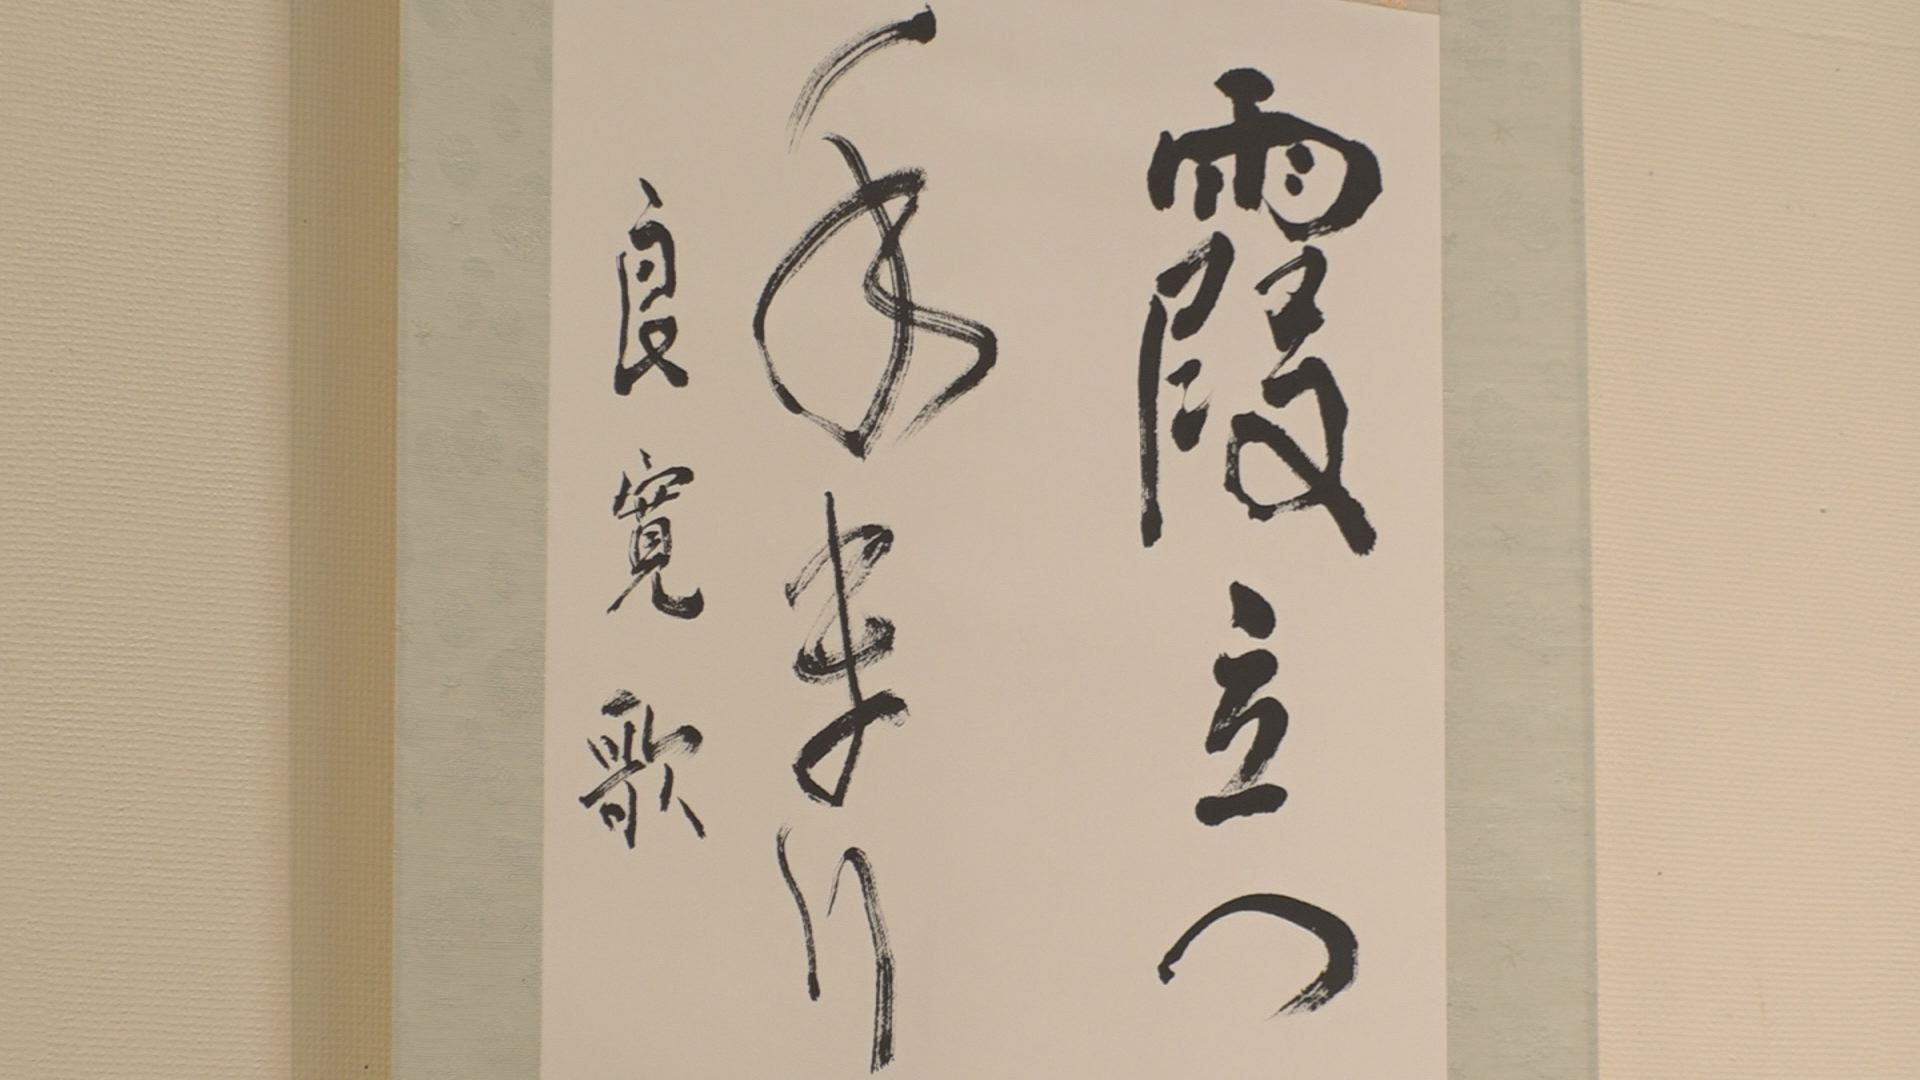 霞立つ
手まり
良寛歌